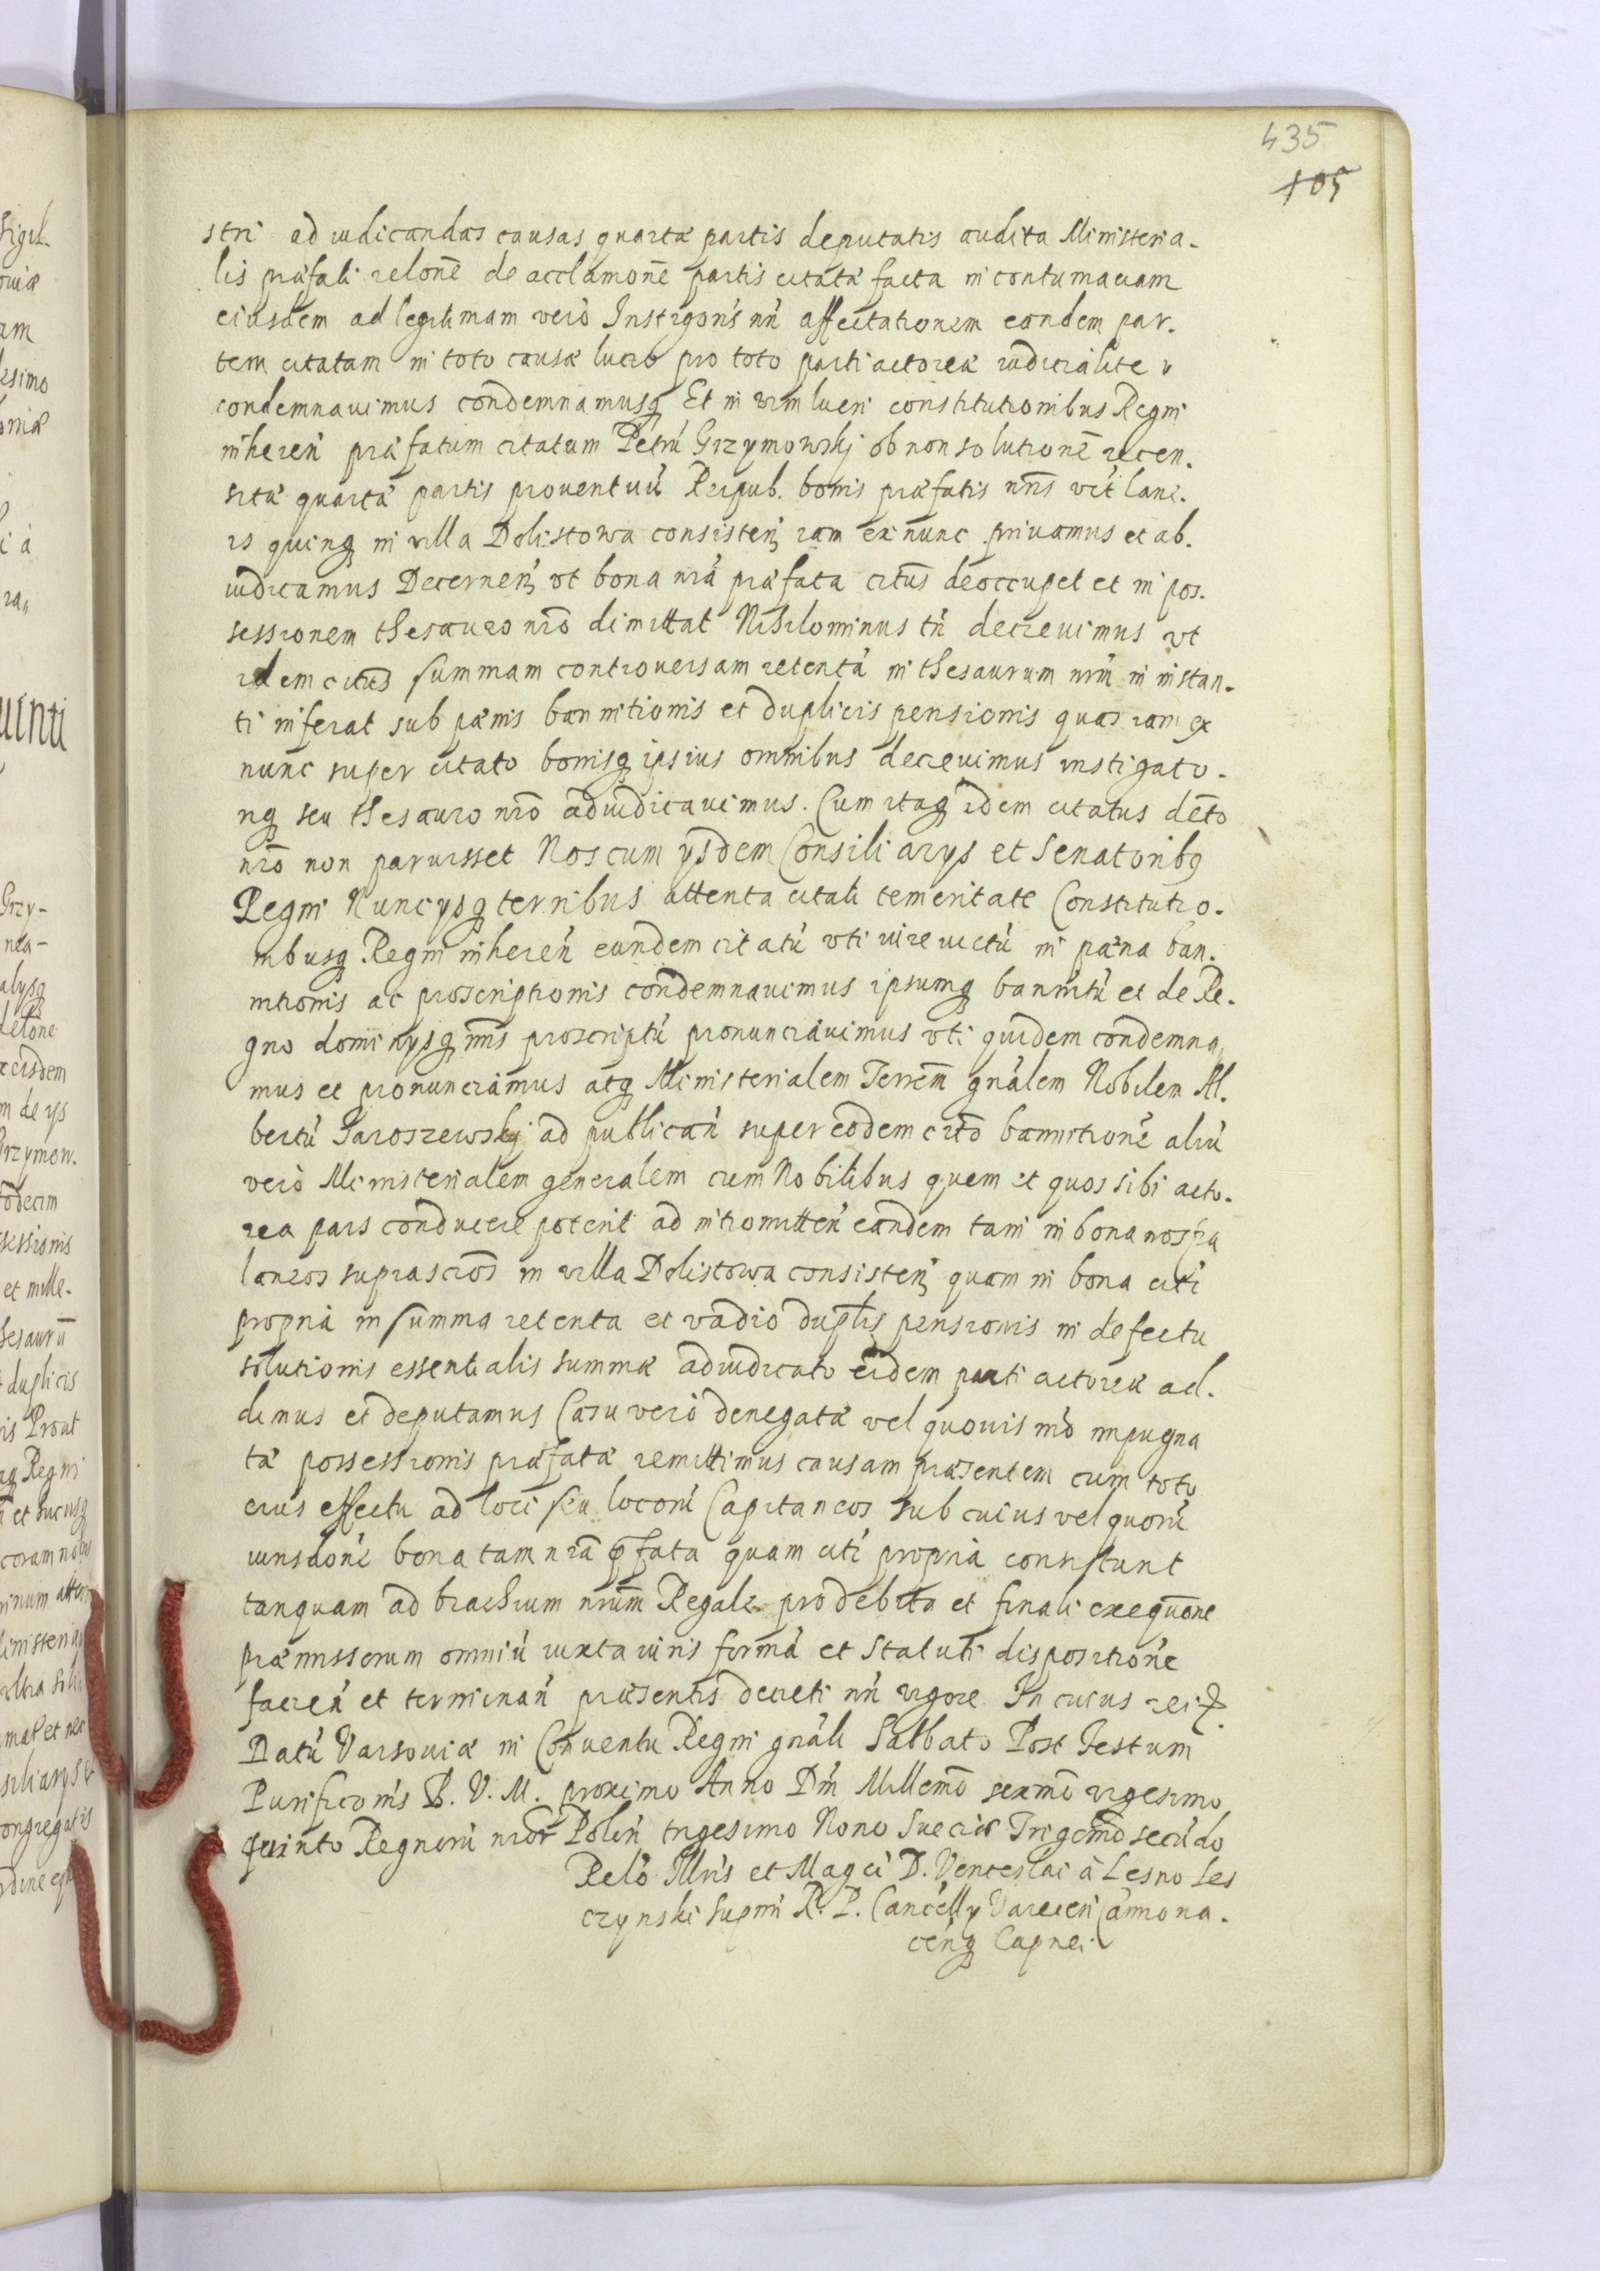 435
105
stri ad iudicandas causas quartæ partis deputatis audita Ministeria-
lis præfati relonē de acclamonē partis citatæ facta in contumaciam
eiusdem ad legitimam verò Instigoris nri affectationem eandem par-
tem citatam in toto causæ lucro pro toto parti actoreæ iudicialiter
condemnauimus condemnamusq Et in vim lucri constitutionibus Regni
inheren præfatum citatum Petrū Grzymowskj ob non solutionē recen-
sitæ quartæ partis prouentuū Reipub. bonis præfatis nris vit lanè-
is quinq in villa Dolistowa consisten iam ex nunc priuamus et ab-
iudicamus Decernen vt bona nrā præfata citus deoccupet et in pos-
sessionem thesauro nrō dimittat Nihilominus tn decreuimus vt
idem citus summam controuersam retentā in thesaurum nrm in instan-
ti inferat sub pænis bannitionis et duplicis pensionis quas iam ex
nunc super citato bonisq ipsius omnibus decreuimus instigato-
riq seu thesauro nrō adiudicauimus. Cum itaq idem citatus dēto
nrō non paruisset Nos cum ysdem Consiliarys et Senatoribq
Regni Nuncysq terribus attenta citati temeritate Constitutio-
nibusq Regni inheren eundem citatū vti iure victū in pæna ban-
nitionis ac proscriptionis condemnauimus ipsumq bannitū et de Re-
gno dominysq nris proscriptū pronunciauimus vti quidem condemna
mus et pronunciamus atq Ministerialem Terrem gnālem Nobilem Al-
bertū Jaroszewskj ad publican super eodem citō bannitionē aliū
verò Ministerialem generalem cum Nobilibus quem et quos sibi acto-
rea pars conducere poterit ad intromitten eandem tam in bona nos pa
laneos suprascrōs in villa Dolistowa consisten quam in bona citi
propria in summa retenta et vadio duplis pensionis in defectu
solutionis essentialis summæ adiudicato eidem parti actoreæ ad-
dimus et deputamus Casu verò denegatæ vel quouis mō impugna
tæ possessionis præfatæ remittimus causam præsentem cum toto
eius effectu ad loci seu locorū Capitaneos sub cuius vel quorū
iurisdonē bona tam nrā pfata quam citi propria consistunt
tanquam ad brachium nrūm Regale pro debita et finali exequone
præmissorum omniū iuxta iuris formā et Statuti dispositionē
facien et terminan præsentis decreti nri vigore In cuius rei
Datū Varsouiæ in Conuentu Regni gnāli Sabbato Post Festum
Purificonis B. V. M. proximo Anno Dni Millemō sexmō vigesimo
quinto Regnorū nror Polon trigesimo Nono Sueciæ Trigemō secūdo
Relō Illris et Magci D. Venceslai à Lesno Les
czynski Supmi R. P. Cancelly Varecen Camiona-
cenq Capnei